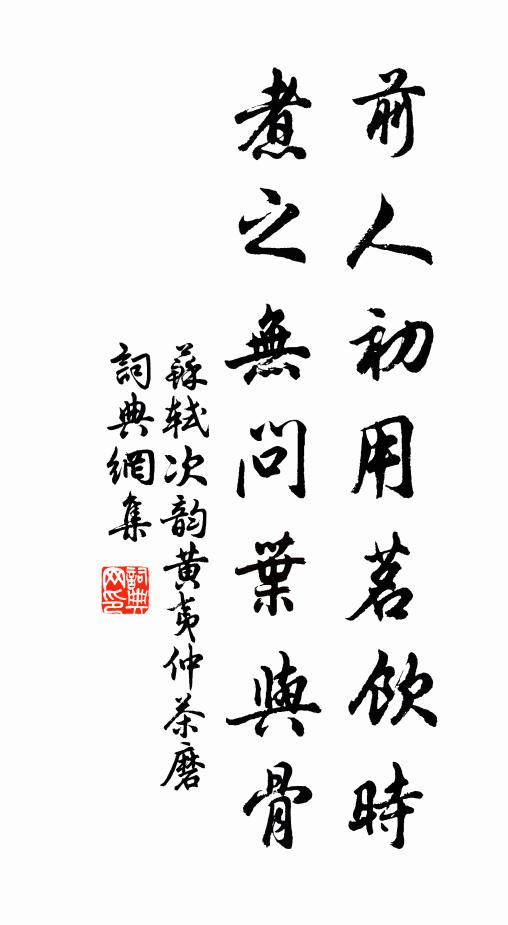 前人初用茗飲時
煮之無問葉與骨
蘇軾次韵黄夷仲茶磨
詞典網集
詞典
网印